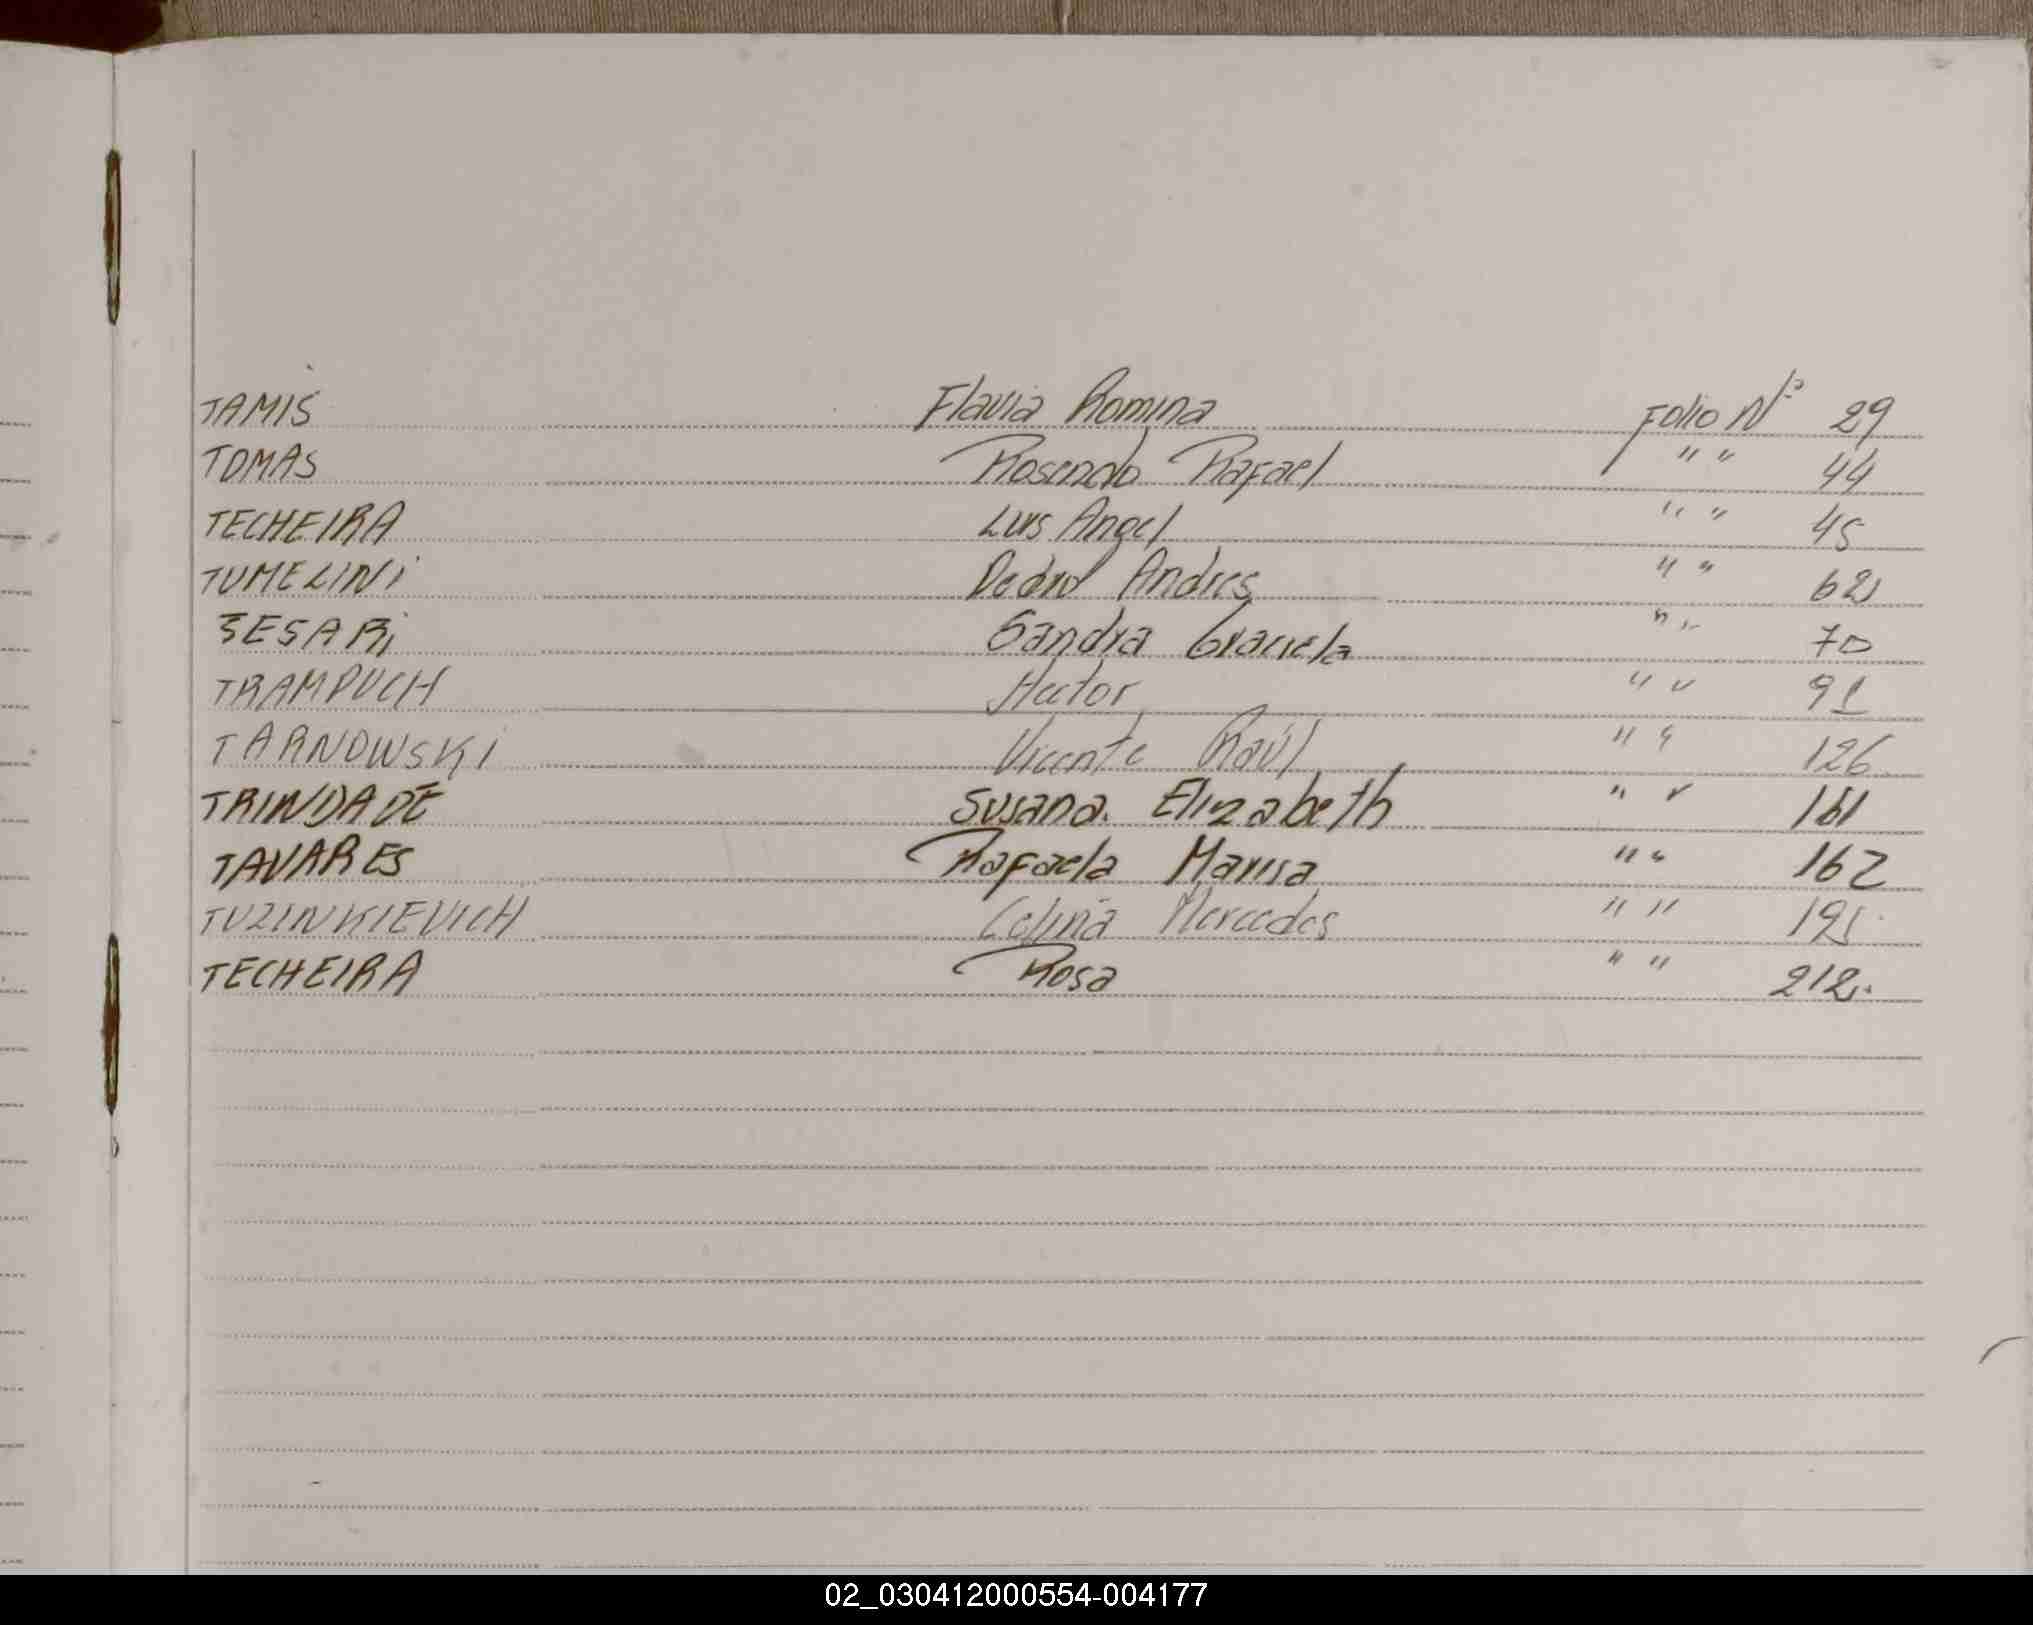 TAMIS Flavia Romina Folio Nº 29
TOMAS Rosendo Rafael " " 44
TECHEIRA Luis Angel " " 45
TUMELINI Pedro Andres " " 62
TESARI Sandra Graciela " " 70
TRAMPUCH Hector " " 91
TARNOWSKI Vicente Raúl " " 126
TRINDADE Susana. Elizabeth " " 161
TAVARES Rafaela Marisa " " 162
TUZINKIEVICH Celina Mercedes " " 195
TECHEIRA Rosa " " 212.
02_030412000554-004177